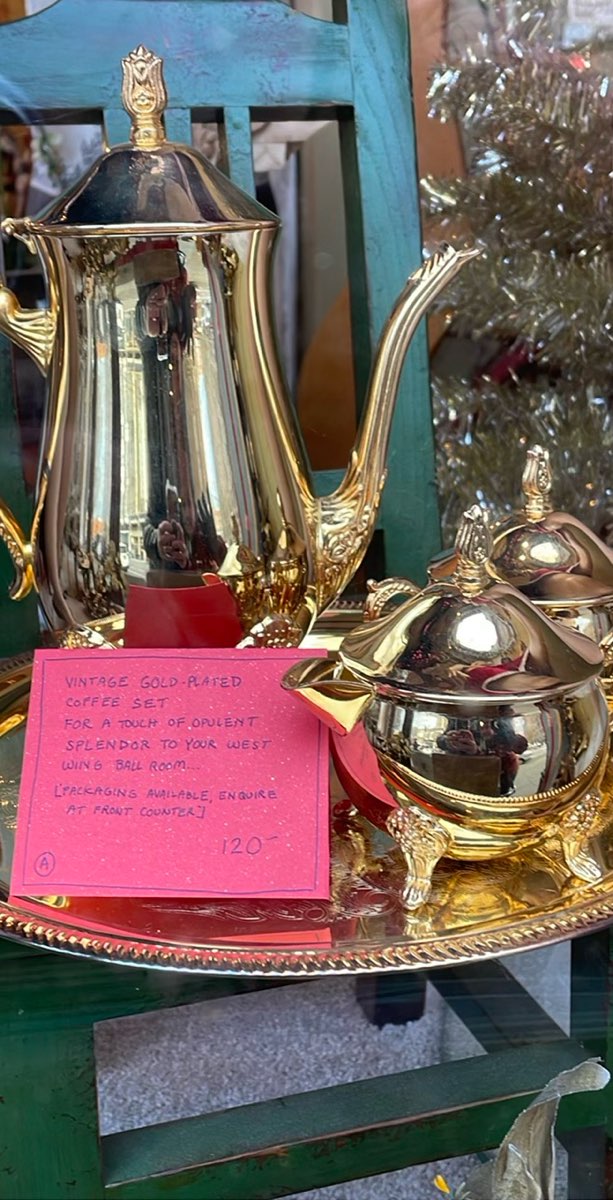 VINTAGE GOLD-PLATED
COFFEE SET
FOR A TOUCH OF OPULENT
SPLENDOR TO YOUR WEST
WING BALL ROOM...
[PACKAGING AVAILABLE, ENQUIRE
AT FRONT COUNTER]
120-
A